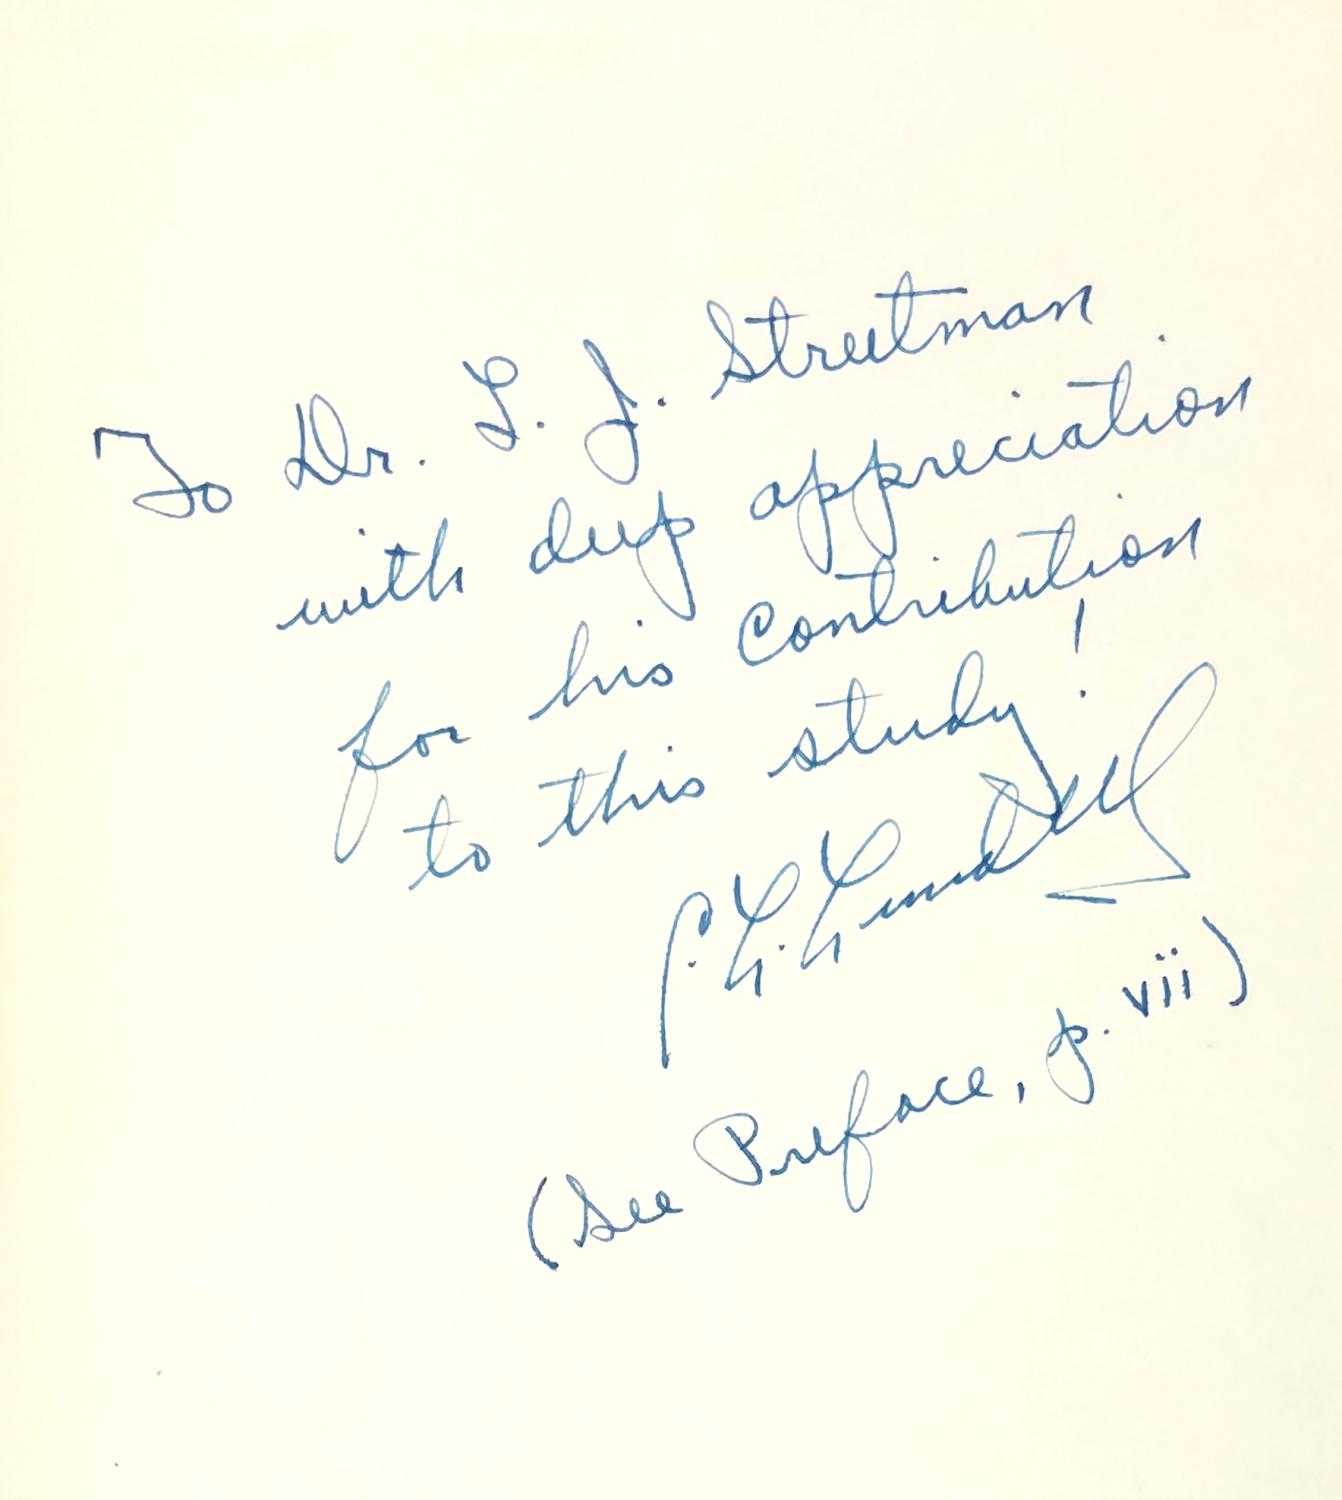 To Dr. L. J. Streetman
with deep appreciation
for his contribution
to this study!
C. L. Lundell
(See Preface, p. vii)